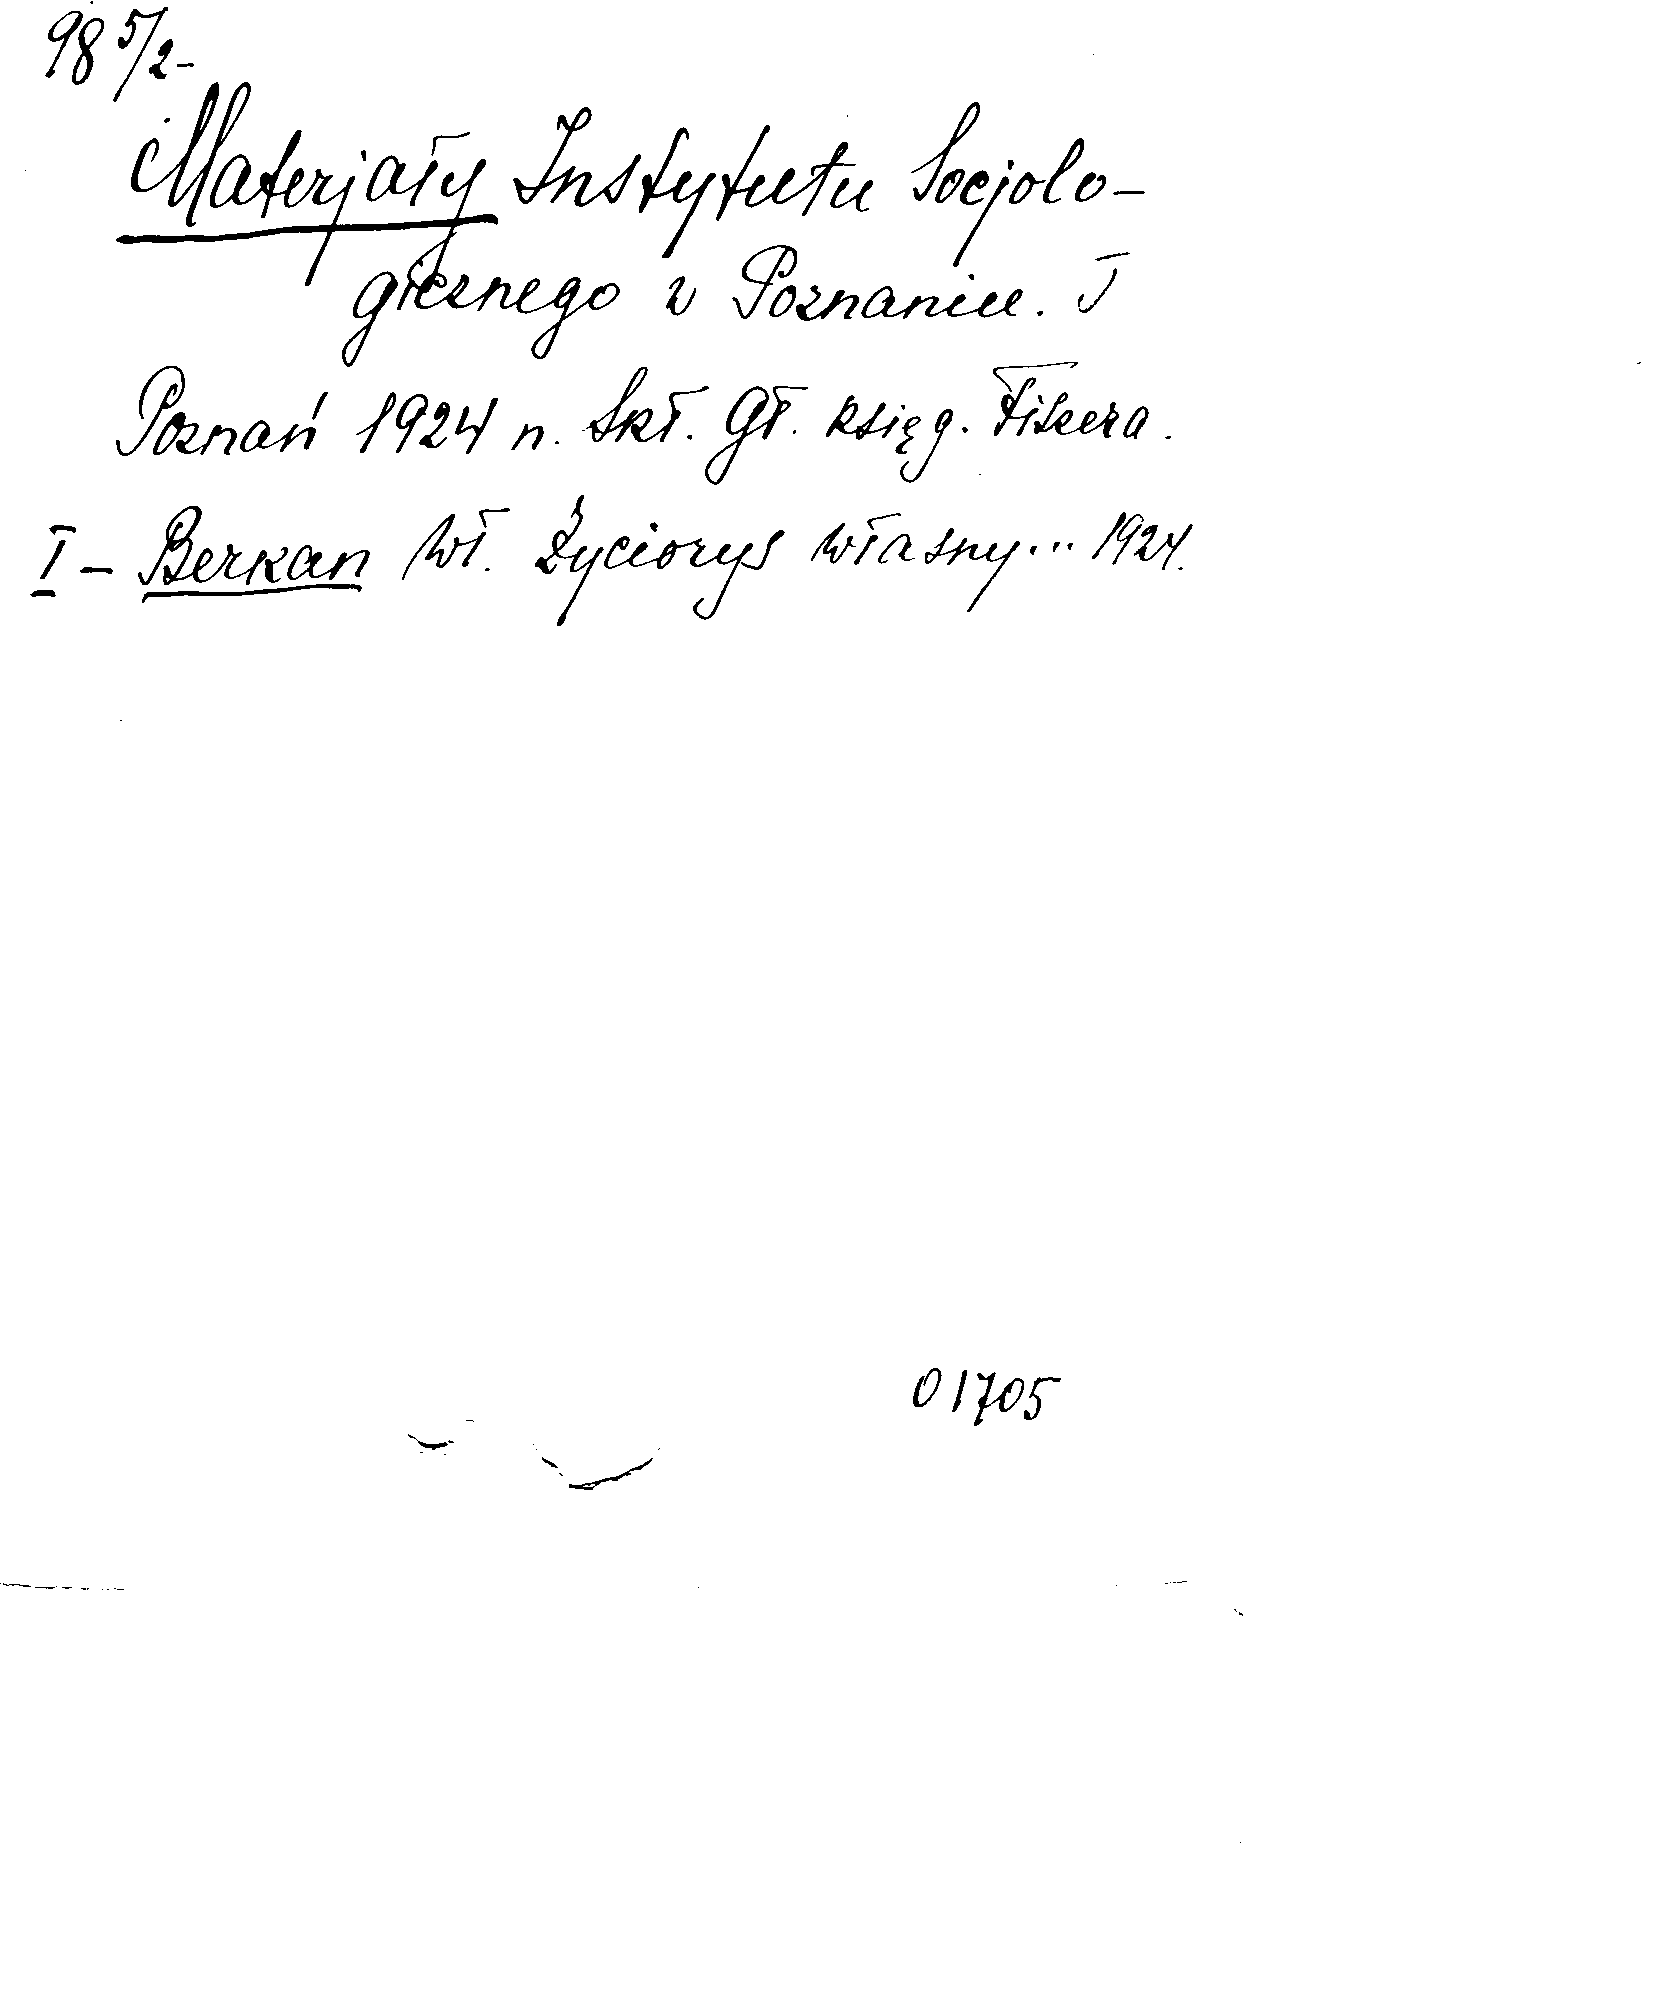 98 5/2-
Materjały Instytutu Socjolo-
gicznego w Poznaniu. I
Poznań 1924 n. Skł. Gł. Księg. Fiszera.
I - Berkan Wł. Życiorys własny... 1924.
01705